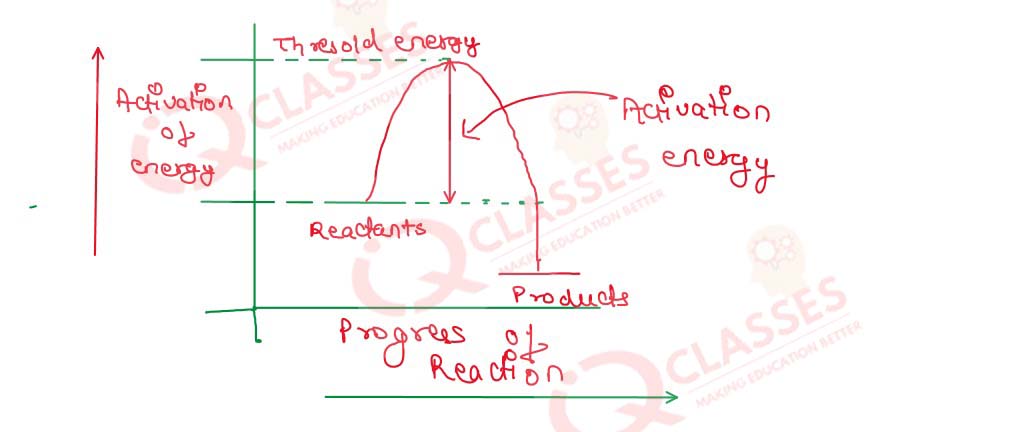 Thresold energy
Activation
of
energy
Activation
energy
Reactants
Products
Progress of
Reaction
iQ CLASSES
MAKING EDUCATION BETTER
iQ CLASSES
MAKING EDUCATION BETTER
iQ CLASSES
MAKING EDUCATION BETTER